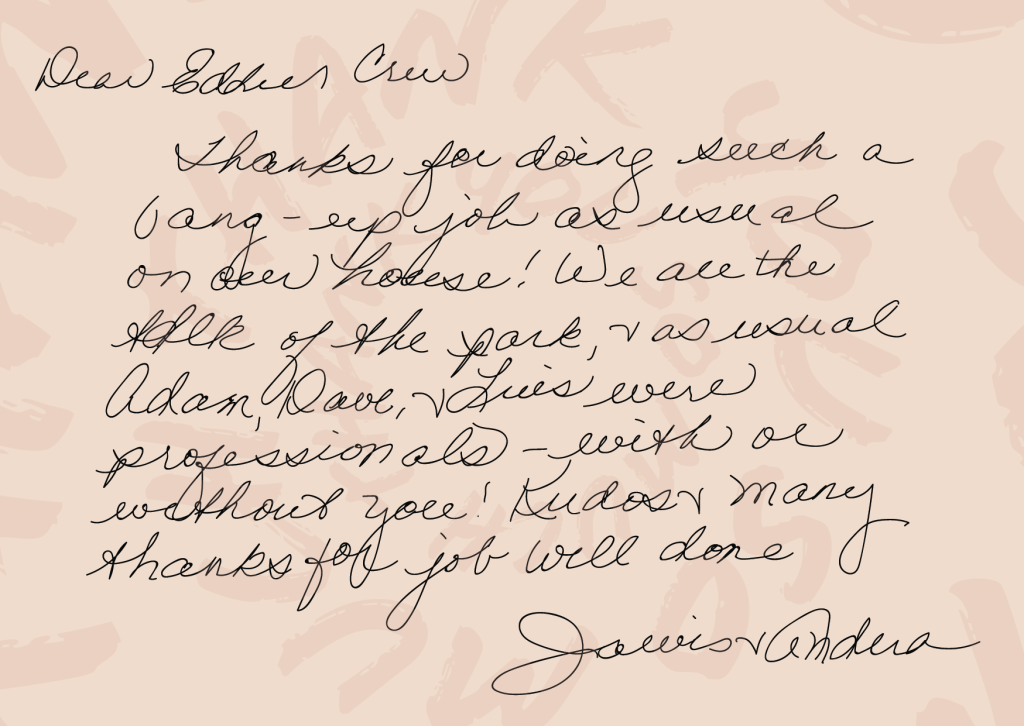 Dear Eddie's Crew
Thanks for doing such a
bang-up job as usual
on our house! We are the
talk of the park, & as usual
Adam, Dave, & Luis were
professionals - with or
without you! Kudos & many
thanks for job well done
& Andera